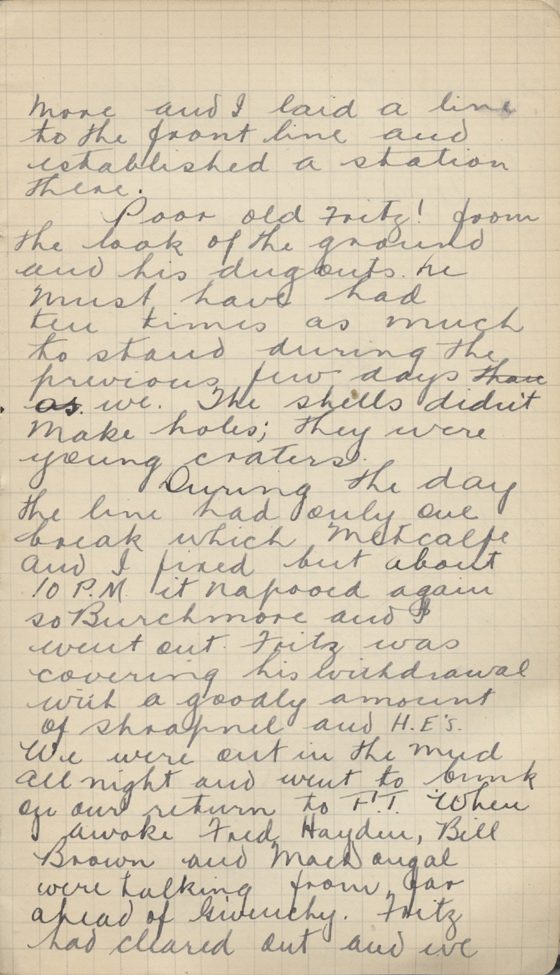 more and I laid a line
to the front line and
established a station
there.
Poor old Fritz! from
the look of the ground
and his dugouts he
must have had
ten times as much
to stand during the
previous few days than
as we. The shells didn't
make holes; they were
young craters.
During the day
the line had only one
break which Metcalfe
and I fixed but about
10 P.M. it napooed again
so Burchmore and I
went out. Fritz was
covering his withdrawal
with a goodly amount
of shrapnel and H.E's.
We were out in the mud
all night and went to bunk
on our return to F.T. When
I awoke Fred Hayden, Bill
Brown and MacDougal
were talking from far
ahead of Givenchy. Fritz
had cleared out and we